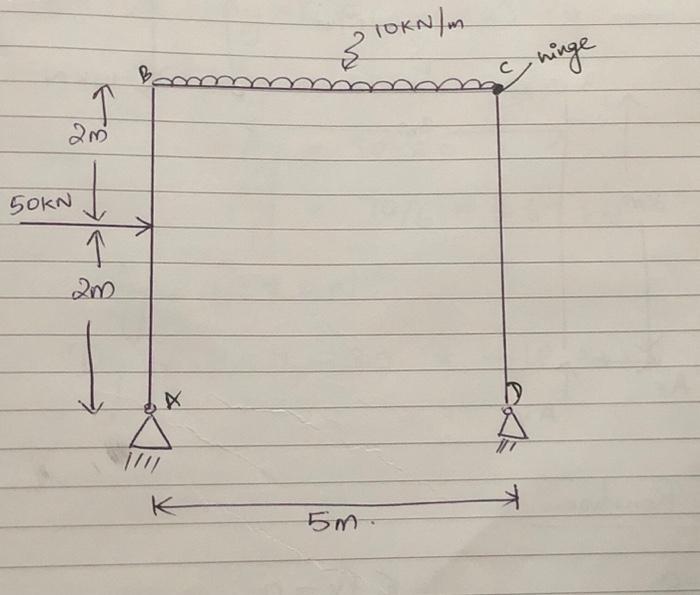 10KN/m
B
C
hinge
2m
50KN
2m
A
D
5m.